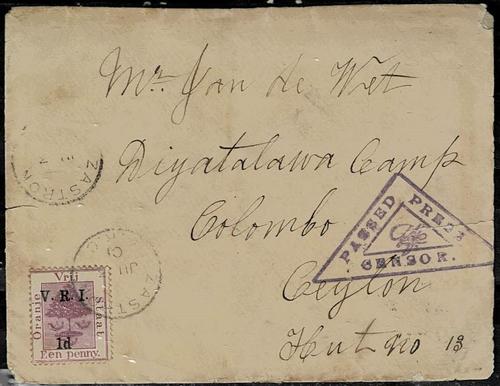 Mr. Jan de Wet
Diyatalawa Camp
Colombo
Ceylon
Hut no 13
PASSED PRESS
CENSOR.
ZASTRON
ZAST
JU
01
Vrij
Oranje
Staat
V.R.I.
1d
Een penny.